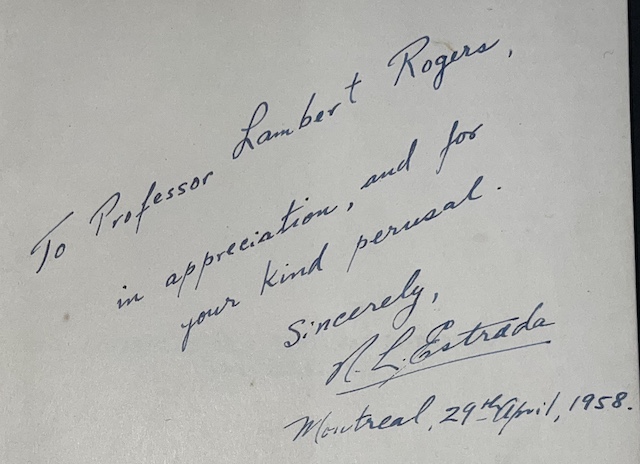 To Professor Lambert Rogers,
in appreciation, and for
your kind perusal.
Sincerely,
R. L. Estrada
Montreal, 29th April, 1958.